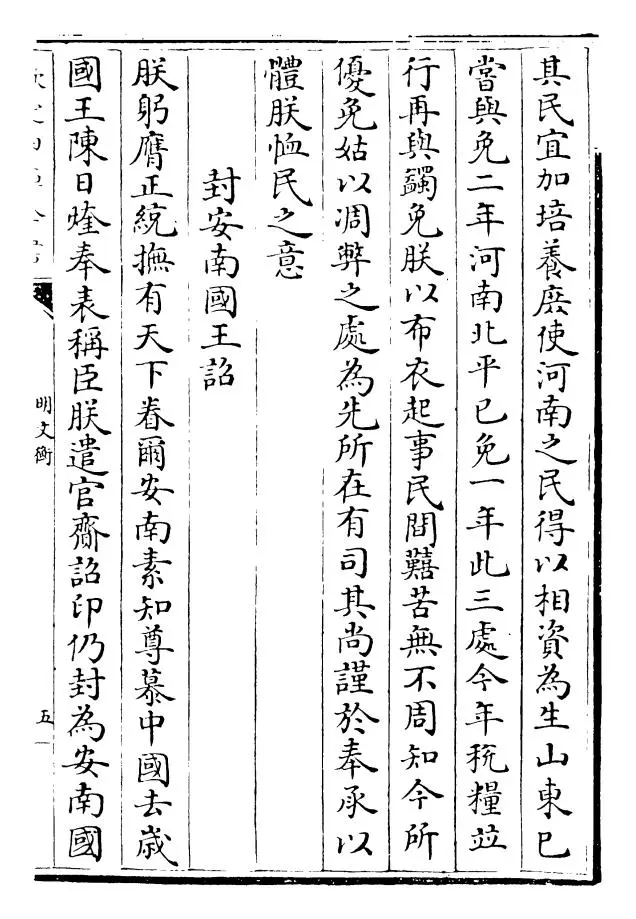 其民宜加培養庶使河南之民得以相資為生山東已
嘗與免二年河南北平已免一年此三處今年稅糧並
行再與蠲免朕以布衣起事民間囏苦無不周知今所
優免姑以凋弊之處為先所在有司其尚謹於奉承以
體朕恤民之意
封安南國王詔
朕躬膺正統撫有天下眷爾安南素知尊慕中國去歲
國王陳日煃奉表稱臣朕遣官齎詔印仍封為安南國
明文衡
五